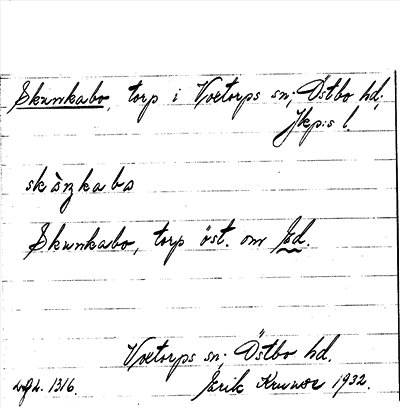 Skunkabo, torp i Voxtorps sn; Östbo hd,
Jkp:s l.
Skunkabo, torp öst. om Ed.
Voxtorps sn; Östbo hd.
1316. Erik 1932.